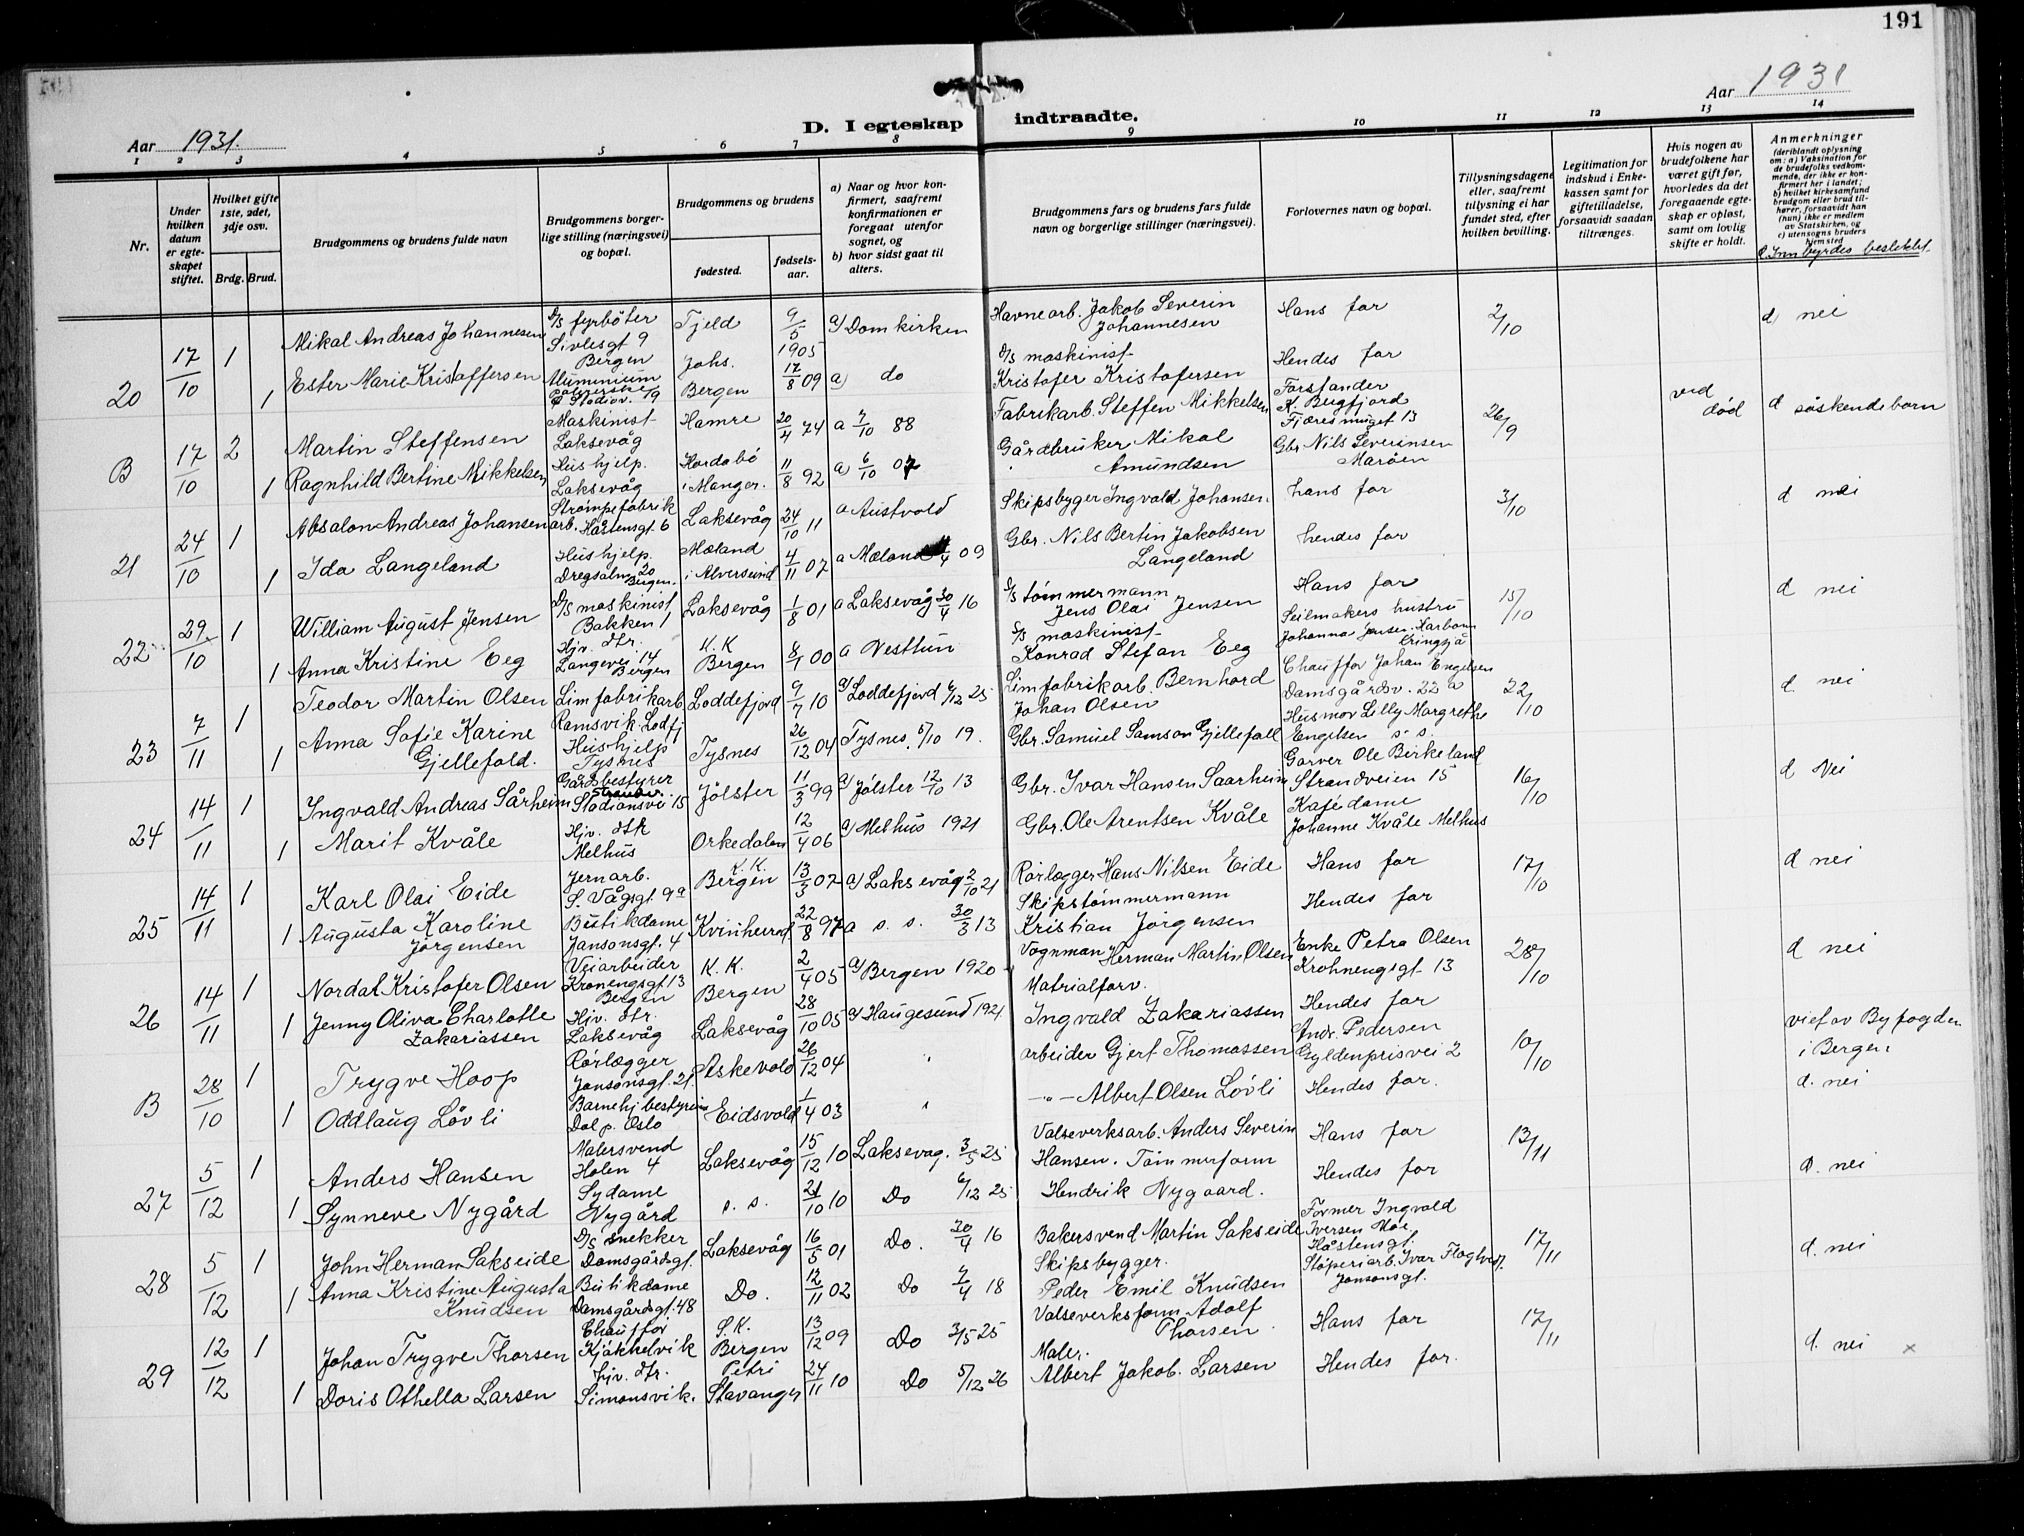 191
Aar 1931.
D. I egteskap indtraadte.
Aar 1931
1 2 3 4 5 6 7 8 9 10 11 12 13 14
Nr.
Under hvilken datum er egteskapet stiftet.
Hvilket gifte 1ste, 2det, 3dje osv.
Brdg. Brud.
Brudgommens og brudens fulde navn
Brudgommens borgerlige stilling (næringsvei) og bopæl.
Brudgommens og brudens
fødested.
fødselsaar.
a) Naar og hvor konfirmert, saafremt konfirmationen er foregaat utenfor sognet, og
b) hvor sidst gaat til alters.
Brudgommens fars og brudens fars fulde navn og borgerlige stillinger (næringsvei).
Forlovernes navn og bopæl.
Tillysningsdagene eller, saafremt tillysning ei har fundet sted, efter hvilken bevilling.
Legitimation for indskud i Enkekassen samt for giftetilladelse, forsaavidt saadan tiltrænges.
Hvis nogen av brudefolkene har været gift før, hvorledes da det foregaaende egteskap er opløst, samt om lovlig skifte er holdt.
Anmerkninger (deriblandt oplysning om: a) Vaksination for de brudefolks vedkommende, der ikke er konfirmert her i landet; b) hvilket kirkesamfund brudgom eller brud tilhører, forsaavidt han (hun) ikke er medlem av Statskirken, og c) utensogns bruders hjemsted
d. Innbyrdes beslektet
20 17/10 1 Mikal Andreas Johannesen D/S fyrbøter Sivlesgt 9 Bergen Tjeld 9/5 1905 a) Domkirken Havnearb. Jakob Severin Johannesen Hans far 2/10 d) nei
1 Ester Marie Kristoffersen Aluminium Stadionv. 19 Johs. Bergen 17/8 09 a) do D/S maskinist Kristofer Kristofersen Hendes far
B 17/10 2 Martin Steffensen Maskinist Laksevåg Hamre 20/4 74 a 7/10 88 Fabrikarb. Steffen Mikkelsen Forstander K. Bugfjord Fjøresmuget 13 26/9 ved død d søskendebarn
1 Ragnhild Bertine Mikkelsen Hushjelp. Laksevåg Hordabø i Manger. 11/8 92 a) 6/10 07 Gårdbruker Mikal Amundsen Gbr. Nils Severinsen Marøen
21 24/10 1 Absalon Andreas Johansen Strømpefabrik arb. Håstensgt. 6 Laksevåg 24/10 11 a Austvold Skipsbygger Ingvald Johansen. hans far 3/10 d nei
1 Ida Langeland Hushjelp. Dregsalm. 20 Bergen. Mæland i Alversund 4/11 07 a Mæland 09 Gbr. Nils Bertin Jakobsen Langeland hendes far
22 29/10 1 William August Jensen D/S maskinist Bakken 1 Laksevåg 1/8 01 a Laksevåg 30/4 16 S/S tømmermann Jens Olai Jensen Hans far 15/10 d nei
1 Anna Kristine Eeg Hjv. dtr. Langevei 14 Bergen K.K Bergen 8/1 00 a Nesttun S/S maskinist Konrad Stefan Eeg Seilmakers hustru Johanna Jensen
23 7/11 1 Teodor Martin Olsen Limfabrikarb. Ramsvik Lodfj Loddefjord 9/7 10 a) Loddefjord 6/12 25 Limfabrikarb. Bernhard Johan Olsen Chauffør Johan Engelsen Damsgårdsv. 22 a 22/10 d. nei
1 Anna Sofie Karine Gjellefald. Hushjelp Tysnes Tysnes 26/12 04 Tysnes. 5/10 19. Gbr. Samuel Samson Gjellefall Husmor Lilly Margrethe Engelsen s. s.
24 14/11 1 Ingvald Andreas Sårheim Gårdsbestyrer Stadionsvei 15 Jølster 11/3 99 a) Jølster 12/10 13 Gbr. Ivar Hansen Saarheim Garver Ole Birkeland Strandveien 15 16/10 d Nei
1 Marit Kvåle Hjv. dtr. Melhus Orkedalen 12/4 06 a) Melhus 1921 Gbr. Ole Arentsen Kvåle Kafédame Johanne Kvåle Melhus
25 14/11 1 Karl Olai Eide Jernarb. S. Vågsgt. 9a K.K. Bergen 13/3 07 a) Laksevåg 2/10 21 Rørlægger Hans Nilsen Eide Hans far 17/10 d. nei
1 Augusta Karoline Jørgensen Butikdame Jansonsgt. 4 Kvinherred 22/8 97 a s. s. 30/3 13 Skipstømmermann Kristian Jørgensen Hendes far
26 14/11 1 Nordal Kristofer Olsen Veiarbeider Kronengsgt 13 Bergen K.K. Bergen 2/4 05 a) Bergen 1920 Vognman Herman Martin Olsen Enke Petra Olsen Krohnengsgt. 13 28/10 d nei
1 Jenny Oliva Charlotte Zakariassen Hjv. dtr. Laksevåg Laksevåg 28/10 05 a) Haugesund 1921. Matrialforv. Ingvald Zakariassen Hendes far
B 28/10 1 Trygve Hoop Rørlægger Jansonsgt. 21 Askevold 26/12 04 " arbeider Gjert Thomassen Andr. Pedersen Gyldenprisvei 2 10/10 viet av Byfogden i Bergen d. nei
1 Oddlaug Løvli Barnehj. bestyrerin Dal p. Oslo Eidsvold 1/4 03 " —"— Albert Olsen Løvli Hendes far.
27 5/12 1 Anders Hansen Malersvend Holen 4 Laksevåg 15/12 10 Laksevåg. 3/5 25 Valseverksarb. Anders Severin Hansen. Hans far 13/11 d. nei
1 Synneve Nygård Sydame Nygård s. s. 21/10 10 Do 6/12 25 Tømmerform Hendrik Nygaard. Hendes far
28 5/12 1 John Herman Sakseide D/S snekker Damsgårdsgt. Laksevåg 16/5 01 Do. 30/4 16 Bakersvend Martin Sakseide Former Ingvald Iversen Moe Håstensgt. 17/11 d. nei
1 Anna Kristine Augusta Knudsen Butikdame Damsgårdsgt. 48 Do. 12/11 02 Do 7/4 18 Skipsbygger. Peder Emil Knudsen Støperiarb. Ivar Flagtvedt. Jansonsgt.
29 12/12 1 Johan Trygve Thorsen Chauffør Kjøkkelvik S.K. Bergen 13/12 09 Do 3/5 25 Valseverksform. Adolf Thorsen Hans far 17/11 d. nei x
1 Doris Othella Larsen hjv. dtr. Simonsvik. Petri Stavanger 24/11 10 Do 5/12 26 Maler. Albert Jakob Larsen Hendes far.